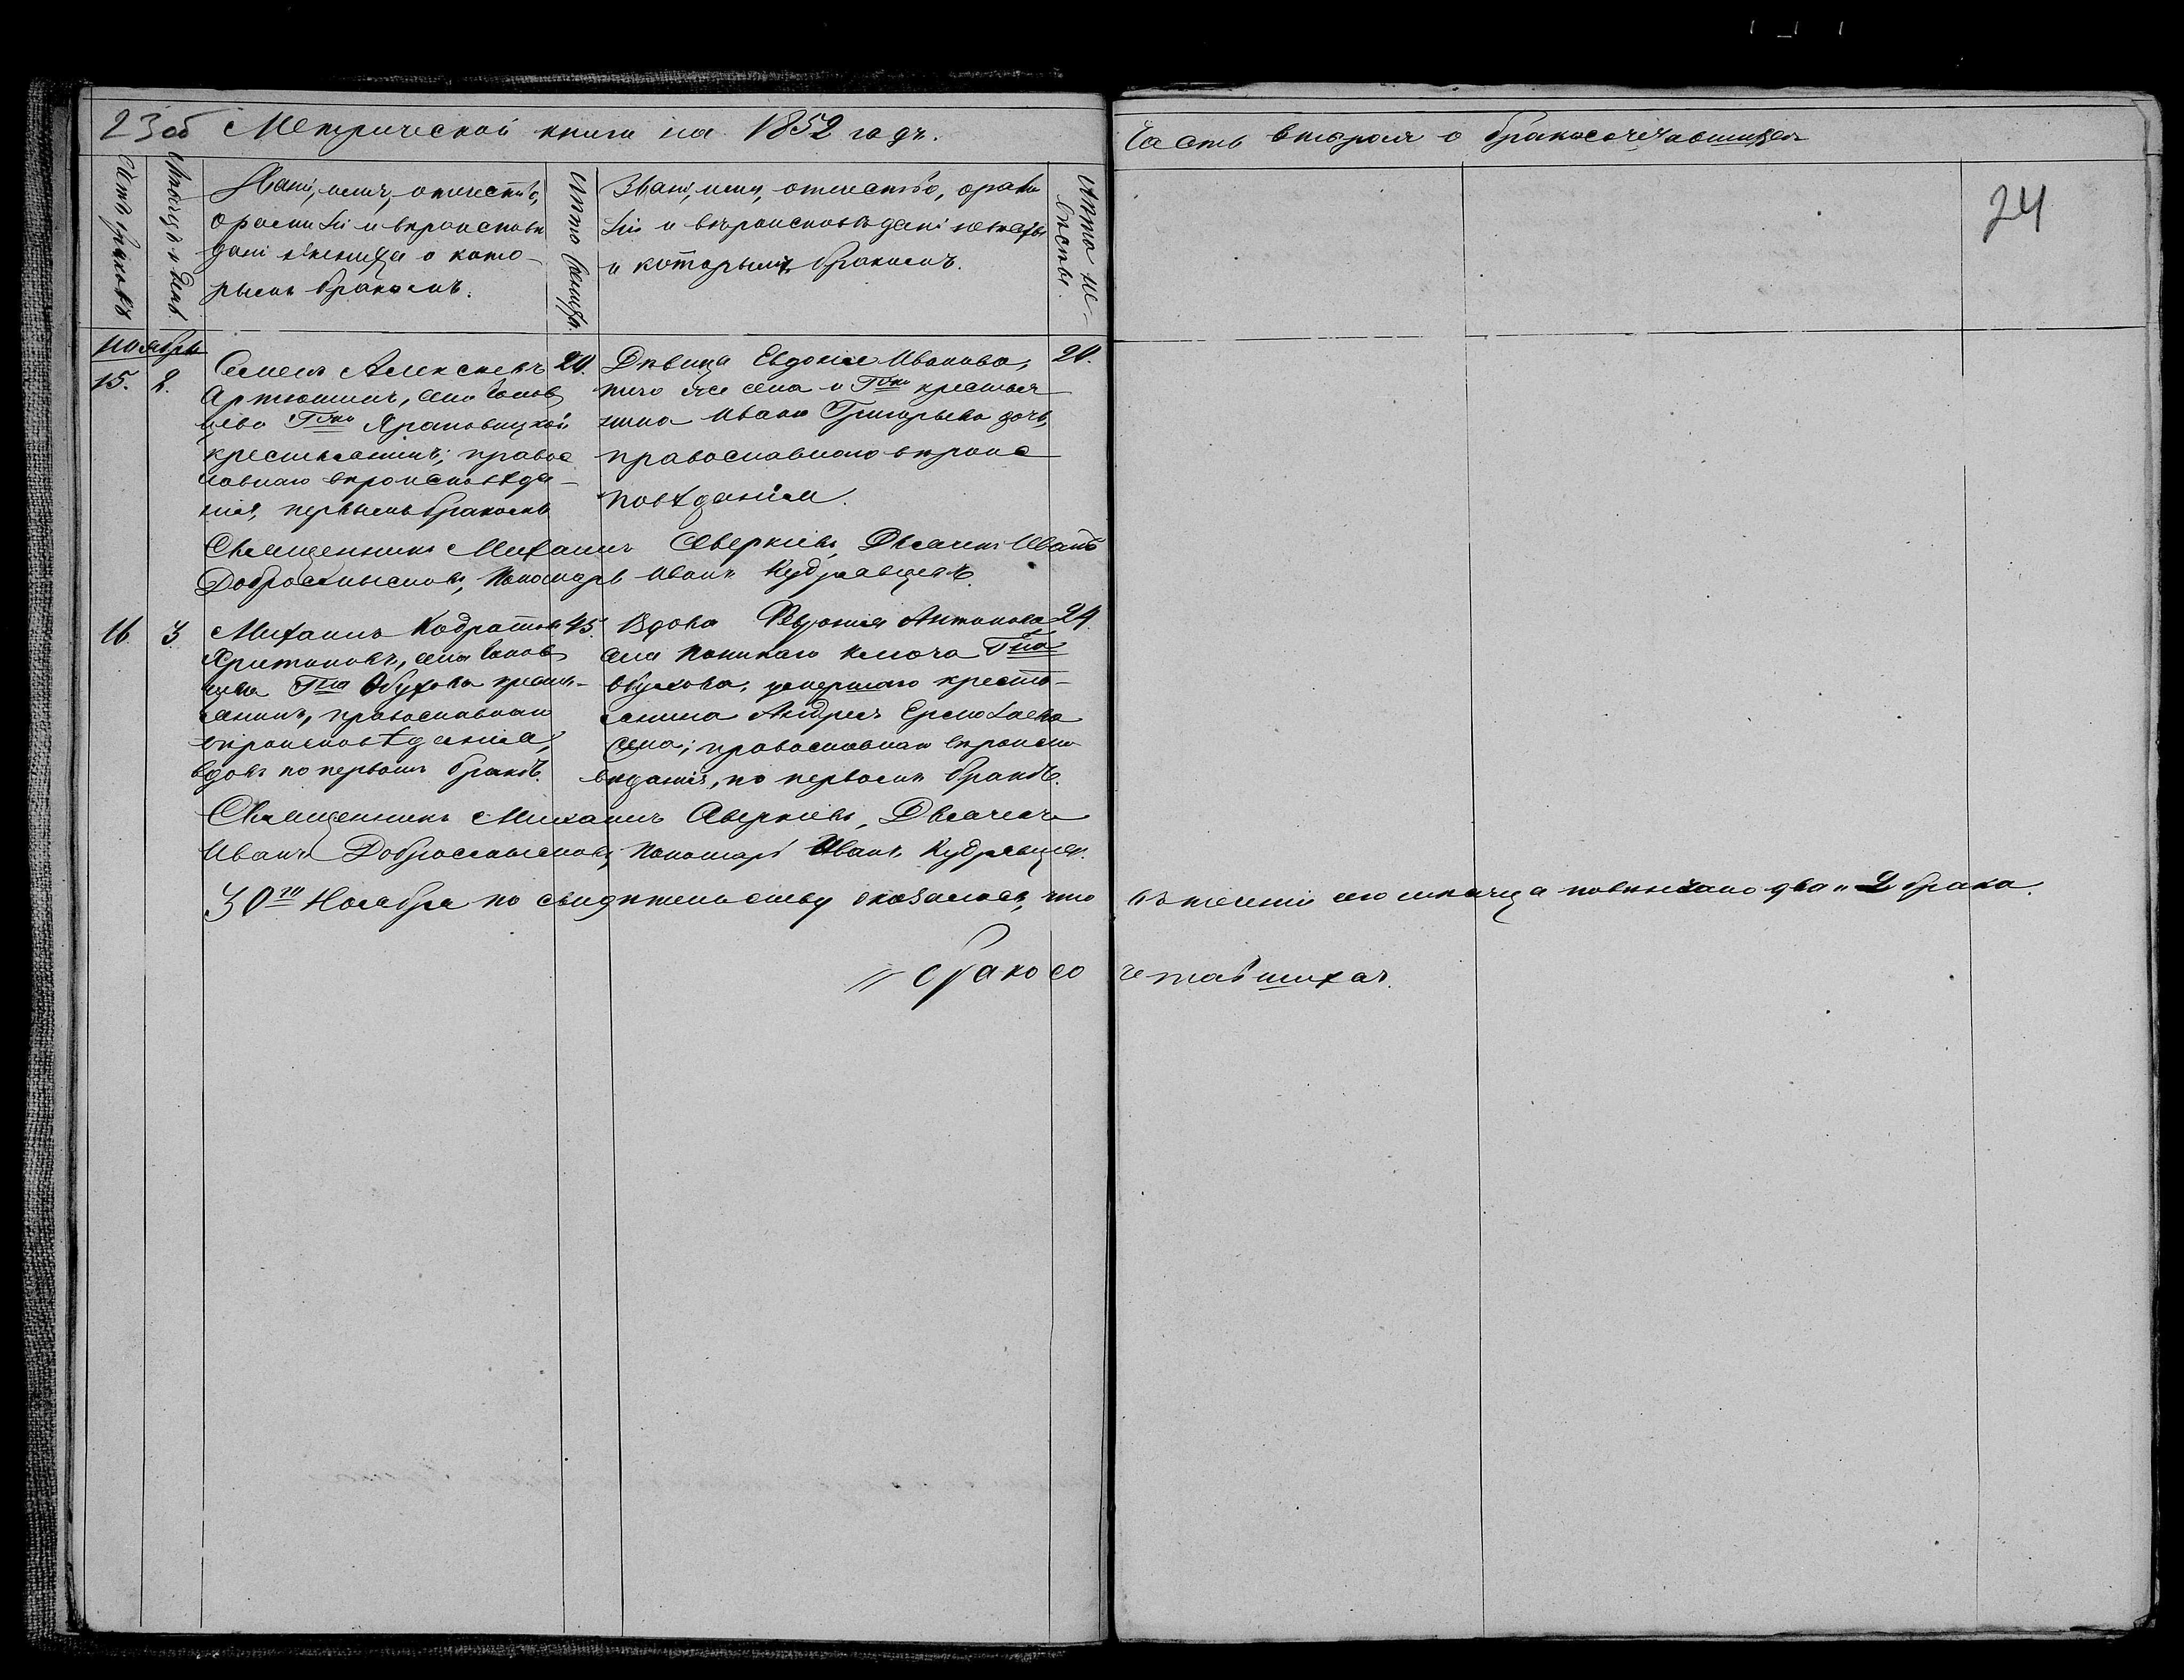 23 об Метрической книги на 1852 годъ.
Часть вторая о бракосочетавшихся
24
Счетъ браковъ
Месяцъ и день.
Звані, имя, отечество,
фамилі и вероиспове
дані жениха о кото-
рымъ бракомъ.
Лета жениха.
Звані, имя, отечество, фами
лія и вероисповѣдані невесты
и которымъ бракомъ.
Лета не-
весты.
Ноября
15. 2.
Семенъ Алексеевъ 20.
Артюшинъ, села
Г-жи
крестьянинъ, правос
лавнаго вероисповѣда-
ния, первымъ бракомъ
Девица Евдокия Иванова, 20.
того же села и Г-жи крестья
нина Ивана Григорьева дочь,
православнаго вероис
повѣданія.
Священникъ Михаилъ Аверкіевъ, Дьячекъ Иванъ
Добросмысловъ, Пономарь Иванъ Кудрявцевъ.
16. 3.
Михаилъ Кодратовъ 45.
Харитоновъ, села
Г-на Обухова кресть-
янинъ, православнаго
вероисповѣдания,
вдовъ по первомъ бракѣ.
Вдова Антонова 24.
села Ключа Г-на
Обухова, умершаго кресть-
янина Андрея Ермолаева
жена, православнаго вероиспо
ведания, по первомъ бракѣ.
Священникъ Михаилъ Аверкіевъ, Дьячекъ
Иванъ Добросмысловъ, Пономарь Иванъ Кудрявцевъ.
30го Ноября по свидетельству оказалося, что въ течении сего месяца повенчано два 2 брака.
о бракосочетавшихся.